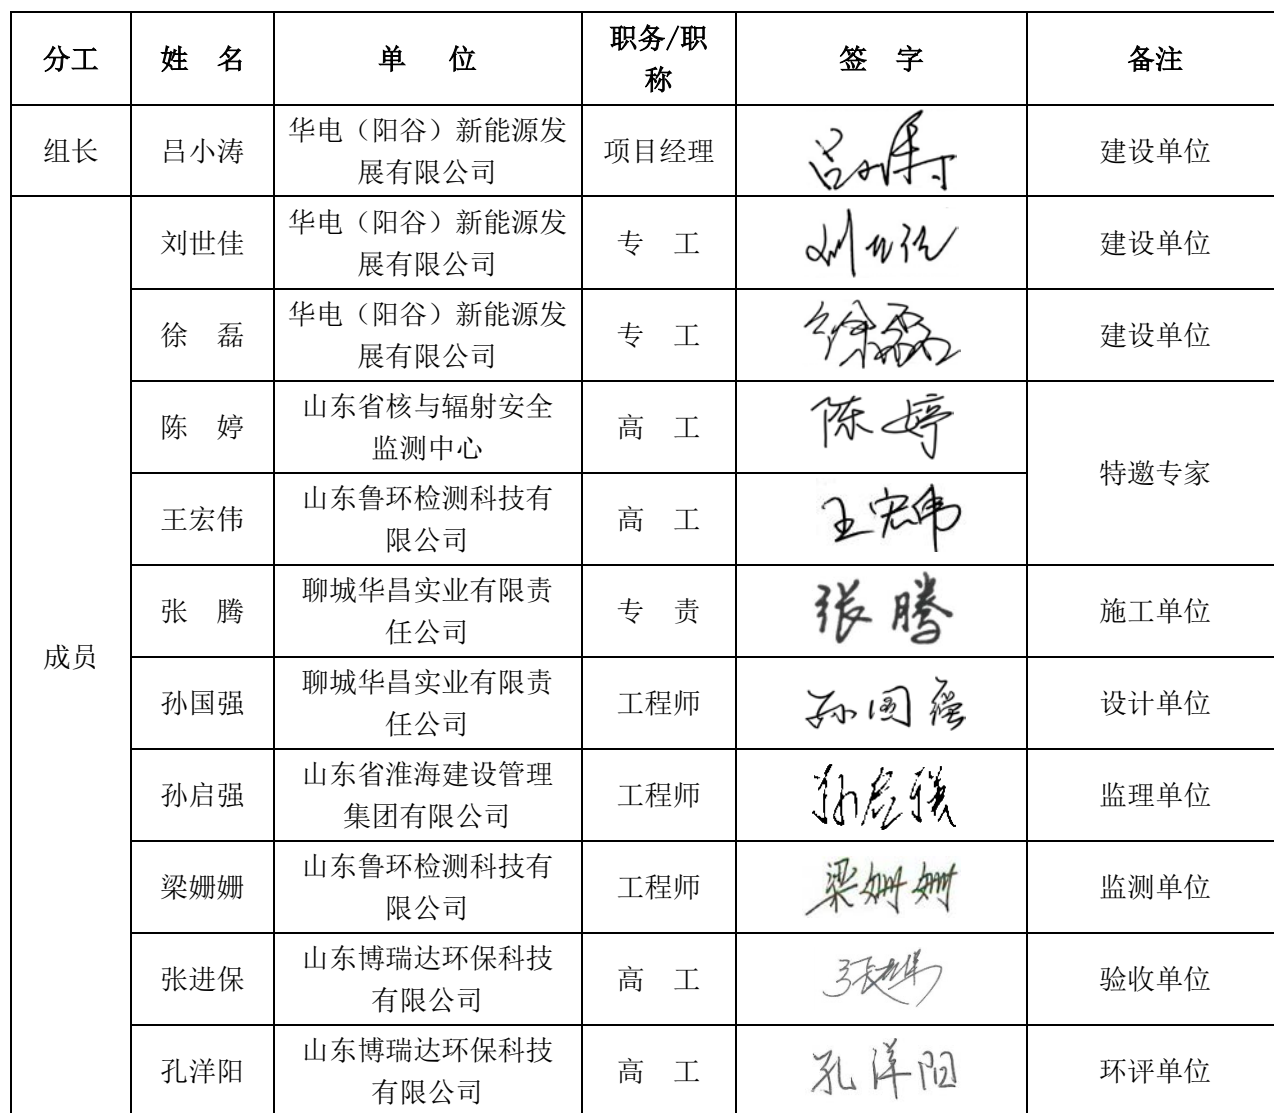 分工 姓 名 单 位 职务/职
称 签 字 备注
组长 吕小涛 华电（阳谷）新能源发
展有限公司 项目经理 吕小涛 建设单位
成员 刘世佳 华电（阳谷）新能源发
展有限公司 专 工 刘世佳 建设单位
徐 磊 华电（阳谷）新能源发
展有限公司 专 工 徐磊 建设单位
陈 婷 山东省核与辐射安全
监测中心 高 工 陈婷 特邀专家
王宏伟 山东鲁环检测科技有
限公司 高 工 王宏伟
张 腾 聊城华昌实业有限责
任公司 专 责 张腾 施工单位
孙国强 聊城华昌实业有限责
任公司 工程师 孙国强 设计单位
孙启强 山东省淮海建设管理
集团有限公司 工程师 孙启强 监理单位
梁姗姗 山东鲁环检测科技有
限公司 工程师 梁姗姗 监测单位
张进保 山东博瑞达环保科技
有限公司 高 工 张进保 验收单位
孔洋阳 山东博瑞达环保科技
有限公司 高 工 孔洋阳 环评单位